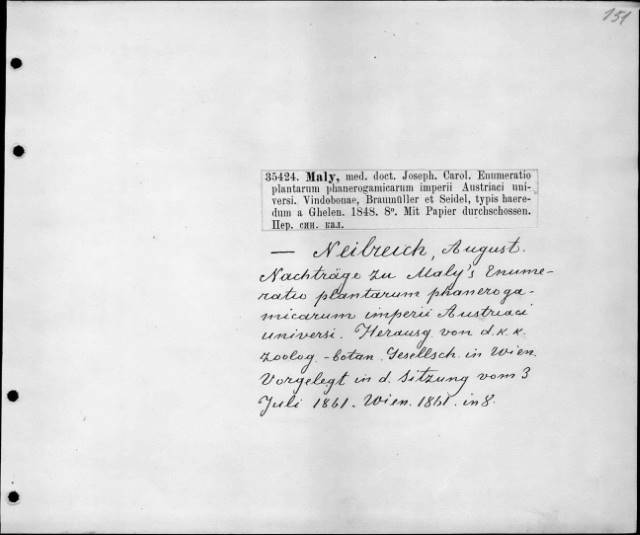 151
35424. Maly, med. doct. Joseph. Carol. Enumeratio
plantarum phanerogamicarum imperii Austriaci uni-
versi. Vindobonae, Braumüller et Seidel, typis haere-
dum a Ghelen. 1848. 8°. Mit Papier durchschossen.
Пер. син. кал.
— Neilreich, August.
Nachträge zu Maly's Enume-
ratio plantarum phaneroga-
micarum imperii Austriaci
universi. Herausg von d. k. k.
zoolog.-botan. Gesellsch. in Wien.
Vorgelegt in d. Sitzung vom 3
Juli 1861. Wien. 1861. in 8.